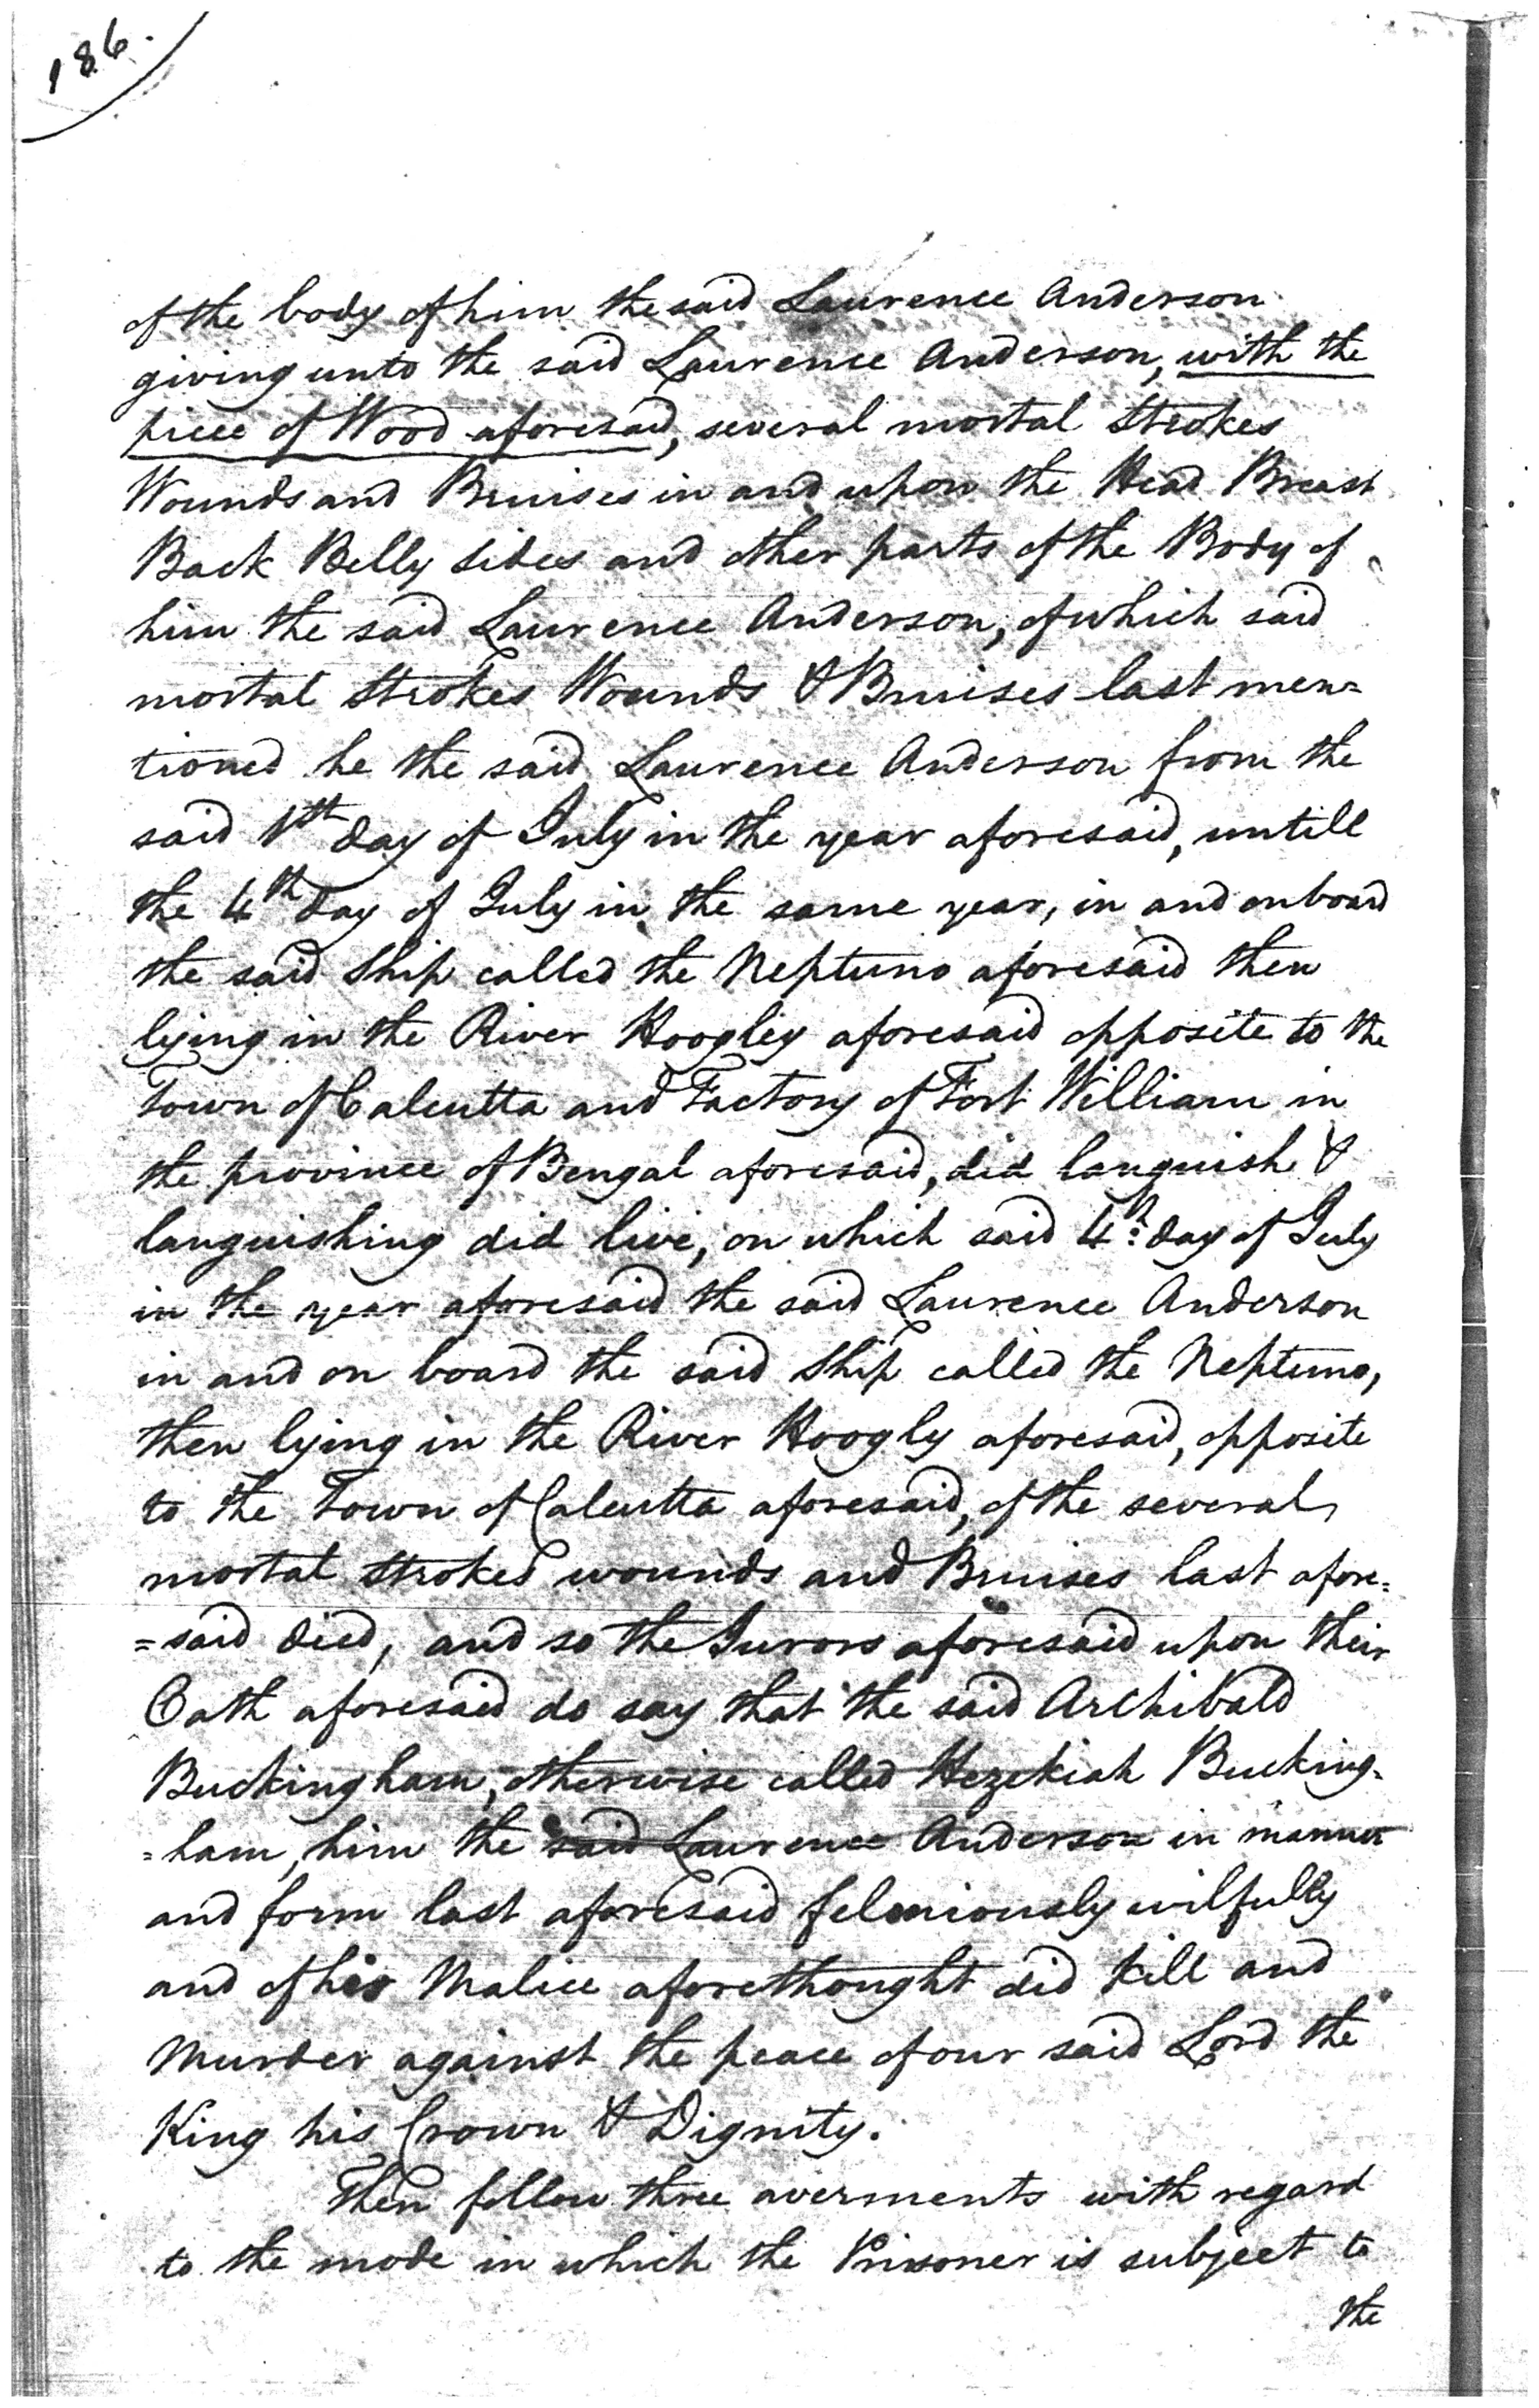 186.
of the body of him the said Laurence Anderson
giving unto the said Laurence Anderson, with the
piece of Wood aforesaid, several mortal Strokes
Wounds and Bruises in and upon the Head Breast
Back Belly sides and other parts of the Body of
him the said Laurence Anderson, of which said
mortal Strokes Wounds & Bruises last men=
tioned he the said Laurence Anderson from the
said 1th day of July in the year aforesaid, untill
the 4th day of July in the same year, in and onboard
the said Ship called the Neptuno aforesaid then
lying in the River Hoogley aforesaid opposite to the
Town of Calcutta and Factory of Fort William in
the province of Bengal aforesaid, did languish &
languishing did live, on which said 4th day of July
in the year aforesaid the said Laurence Anderson
in and on board the said Ship called the Neptuno,
then lying in the River Hoogly aforesaid, opposite
to the Town of Calcutta aforesaid, of the several
mortal Strokes wounds and Bruises last afore=
=said died, and so the Jurors aforesaid upon their
Oath aforesaid do say that the said Archibald
Buckingham, otherwise called Hezekiah Bucking=
=ham, him the said Laurence Anderson in manner
and form last aforesaid feloniously wilfully
and of his Malice aforethought did kill and
Murder against the peace of our said Lord the
King his Crown & Dignity.
Then follow three averments with regard
to the mode in which the Prisoner is subject to
the